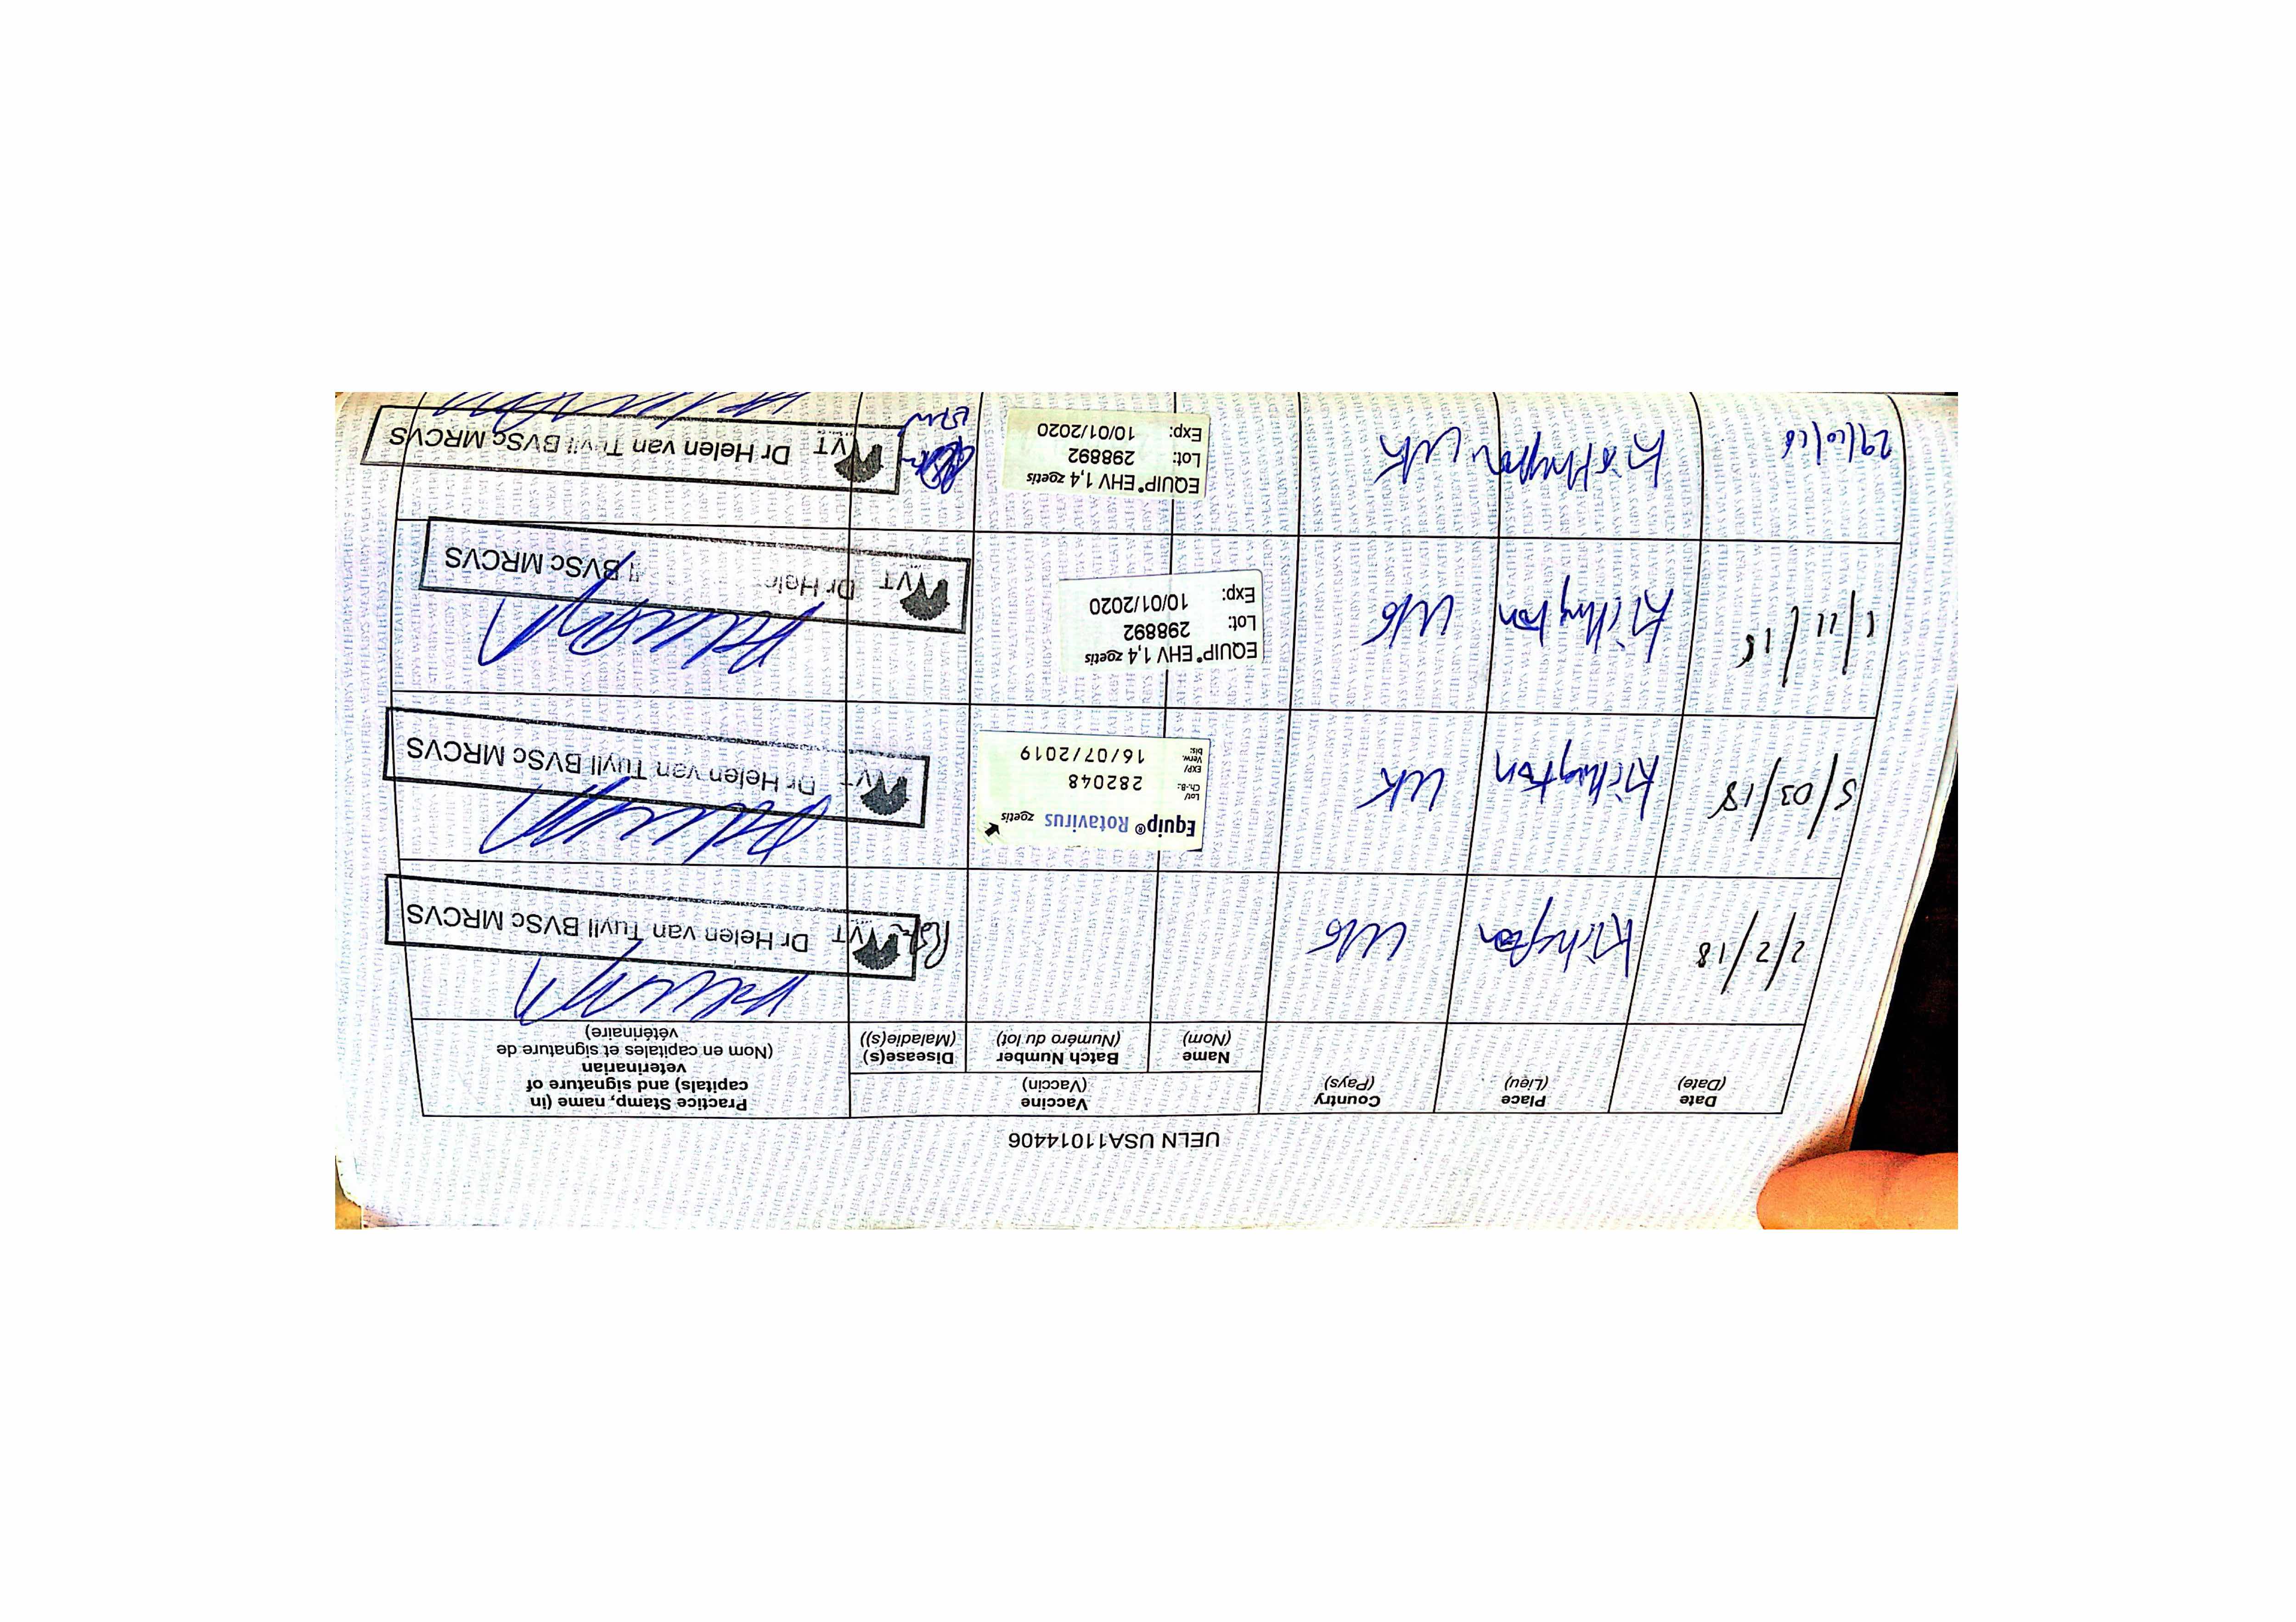 UELN USA11014406
Date
(Date)
Place
(Lieu)
Country
(Pays)
Vaccine
(Vaccin)
Name
(Nom)
Batch Number
(Numéro du lot)
Disease(s)
(Maladie(s))
Practice Stamp, name (in
capitals) and signature of
veterinarian
(Nom en capitales et signature de
vétérinaire)
2/2/18
UK
VT Dr Helen van Tuyll BVSc MRCVS
5/03/18
Kirtlington
UK
Equip® Rotavirus zoetis
Lot/
Ch.-B.: 282048
EXP/
Verw.
bis: 16/07/2019
VT Dr Helen van Tuyll BVSc MRCVS
Kirtlington
UK
EQUIP® EHV 1,4 zoetis
Lot: 298892
Exp: 10/01/2020
VT Dr Hele BVSc MRCVS
Kirtlington UK
EQUIP® EHV 1,4 zoetis
Lot: 298892
Exp: 10/01/2020
VT Dr Helen van Tuyll BVSc MRCVS